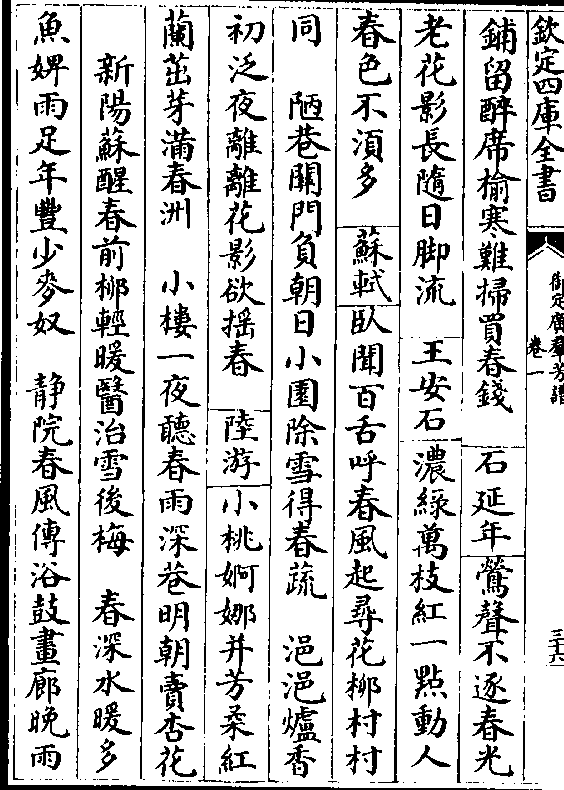 欽定四庫全書
御定廣羣芳譜
卷一
三十六
鋪留醉席榆寒難掃買春錢 石延年 鶯聲不逐春光
老花影長隨日脚流 王安石 濃綠萬枝紅一點動人
春色不湏多 蘇軾 臥聞百舌呼春風起尋花柳村村
同 陋巷關門負朝日小園除雪得春蔬 浥浥爐香
初泛夜離離花影欲摇春 陸游 小桃婀娜并芳柔紅
蘭茁芽滿春洲 小樓一夜聽春雨深巷明朝賣杏花
新陽蘇醒春前柳輕暖醫治雪後梅 春深水暖多
魚婢雨足年豐少麥奴 静院春風傳浴鼓畫廊晚雨